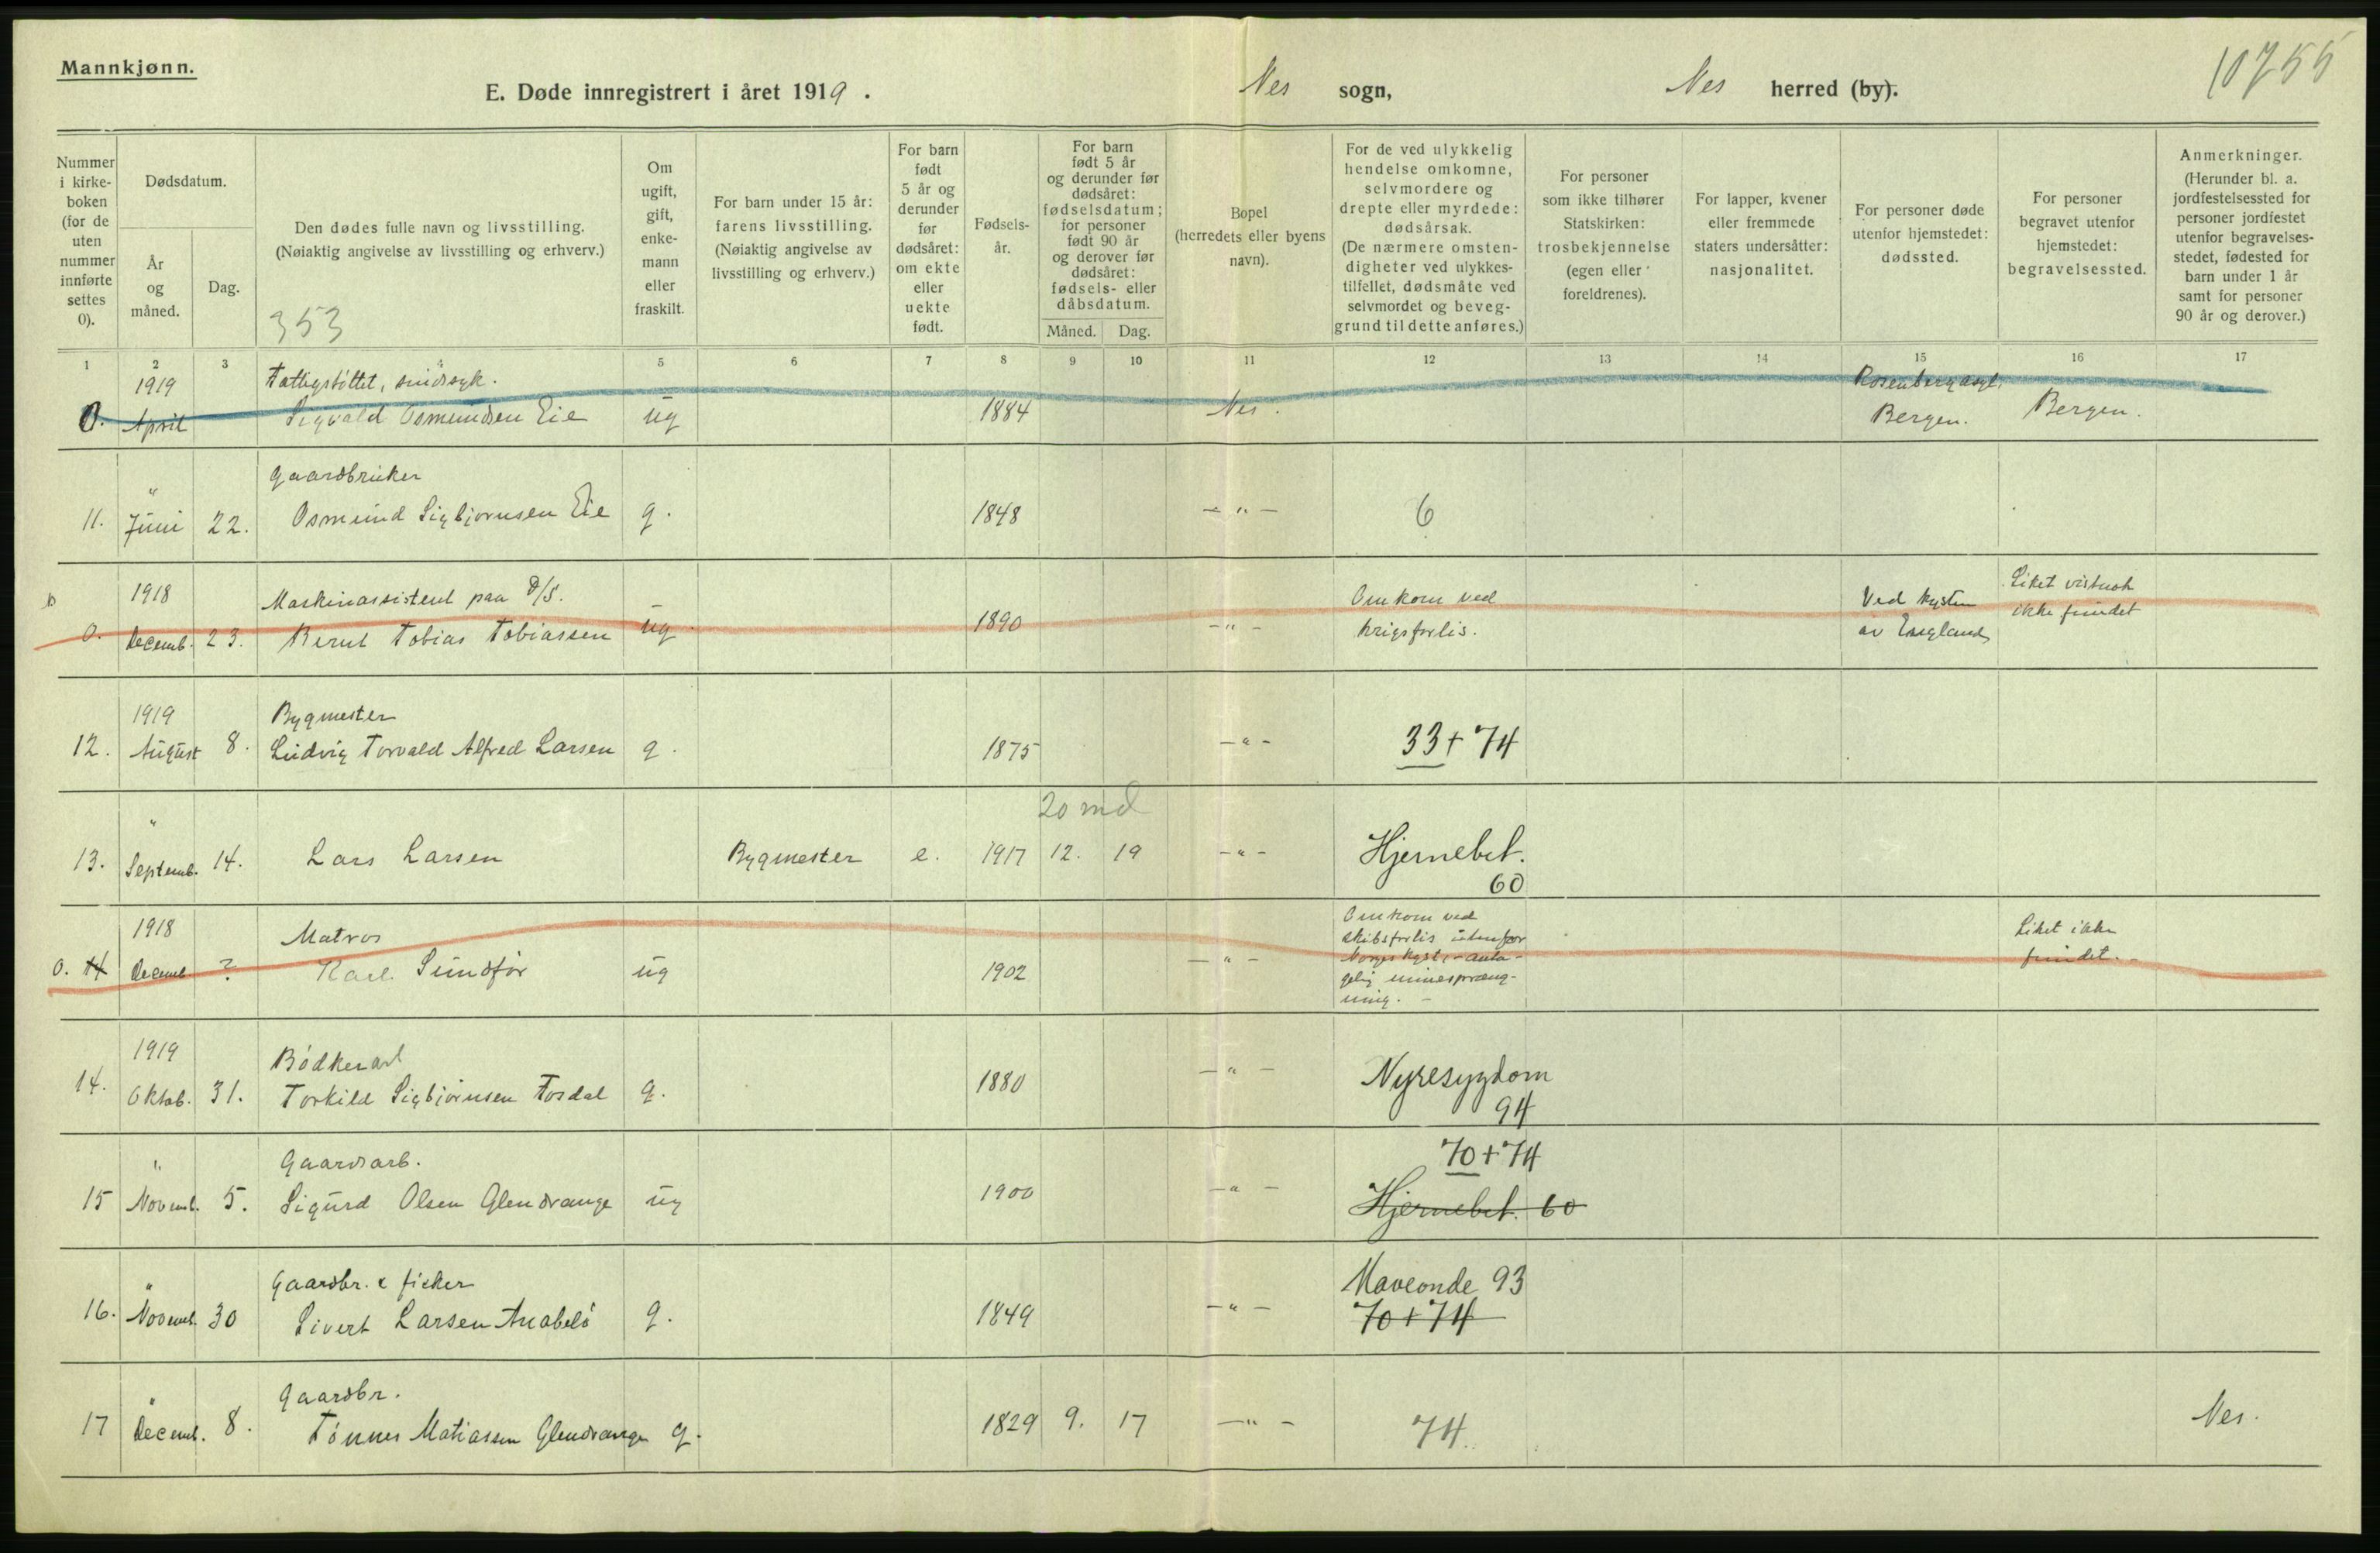 Mannkjønn.
E. Døde innregistrert i året 1919.
Nes sogn,
Nes herred (by).
10755
Nummer i kirkeboken (for de uten nummer innførte settes 0).
Dødsdatum.
År og måned.
Dag.
Den dødes fulle navn og livsstilling.
(Nøiaktig angivelse av livsstilling og erhverv.)
353
Om ugift, gift, enkemann eller fraskilt.
For barn under 15 år: farens livsstilling. (Nøiaktig angivelse av livsstilling og erhverv.)
For barn født 5 år og derunder før dødsåret: om ekte eller uekte født.
Fødselsår.
For barn født 5 år og derunder før dødsåret: fødselsdatum; for personer født 90 år og derover før dødsåret: fødsels- eller dåbsdatum.
Måned. Dag.
Bopel (herredets eller byens navn).
For de ved ulykkelig hendelse omkomne, selvmordere og drepte eller myrdede: dødsårsak. (De nærmere omstendigheter ved ulykkestilfellet, dødsmåte ved selvmordet og beveggrund til dette anføres.)
For personer som ikke tilhører Statskirken: trosbekjennelse (egen eller foreldrenes).
For lapper, kvener eller fremmede staters undersåtter: nasjonalitet.
For personer døde utenfor hjemstedet: dødssted.
For personer begravet utenfor hjemstedet: begravelsessted.
Anmerkninger. (Herunder bl. a. jordfestelsessted for personer jordfestet utenfor begravelsesstedet, fødested for barn under 1 år samt for personer 90 år og derover.)
1 2 3 4 5 6 7 8 9 10 11 12 13 14 15 16 17
1919 Fattigstöttet, sindssyk. Rosenberg asyl,
0. April Sigvald Osmundsen Eie ug 1884 Nes. Bergen. Bergen.
" Gaardbruker
11. Juni 22. Osmund Sigbjørnsen Eie g. 1848 – " – 6
1918 Maskinassistent paa D/S. Omkom ved Ved kysten Liket vistnok
0. Decemb. 23. Bernt Tobias Tobiassen ug 1890 – " – krigsforlis. av England ikke fundet
1919 Bygmester
12. August 8. Ludvig Torvald Alfred Larsen g. 1875 – " – 33 + 74
" 20 md
13. Septemb. 14. Lars Larsen Bygmester e. 1917 12. 19 – " – Hjernebet.
60
1918 Matros Omkom ved skibsforlis utenfor Norges kyst, – antagelig minesprængning. – Liket ikke fundet. –
0. 14 Decemb ? Karl Sundför ug 1902 – " –
1919 Bödkerarb
14. Oktob. 31. Torkild Sigbjörnsen Tosdal g. 1880 – " – Nyresygdom
94
" Gaardsarb. 70 + 74
15 Novemb. 5. Sigurd Olsen Glendrange ug 1900 – " – Hjernebet. 60
" Gaardbr. & fisker Maveonde 93
16. Novemb. 30 Sivert Larsen Anabelö g. 1849 – " – 70 + 74
" Gaardbr.
17 Decemb. 8. Tönnes Matiassen Glendrange g. 1829 9. 17 – " – 74 Nes.